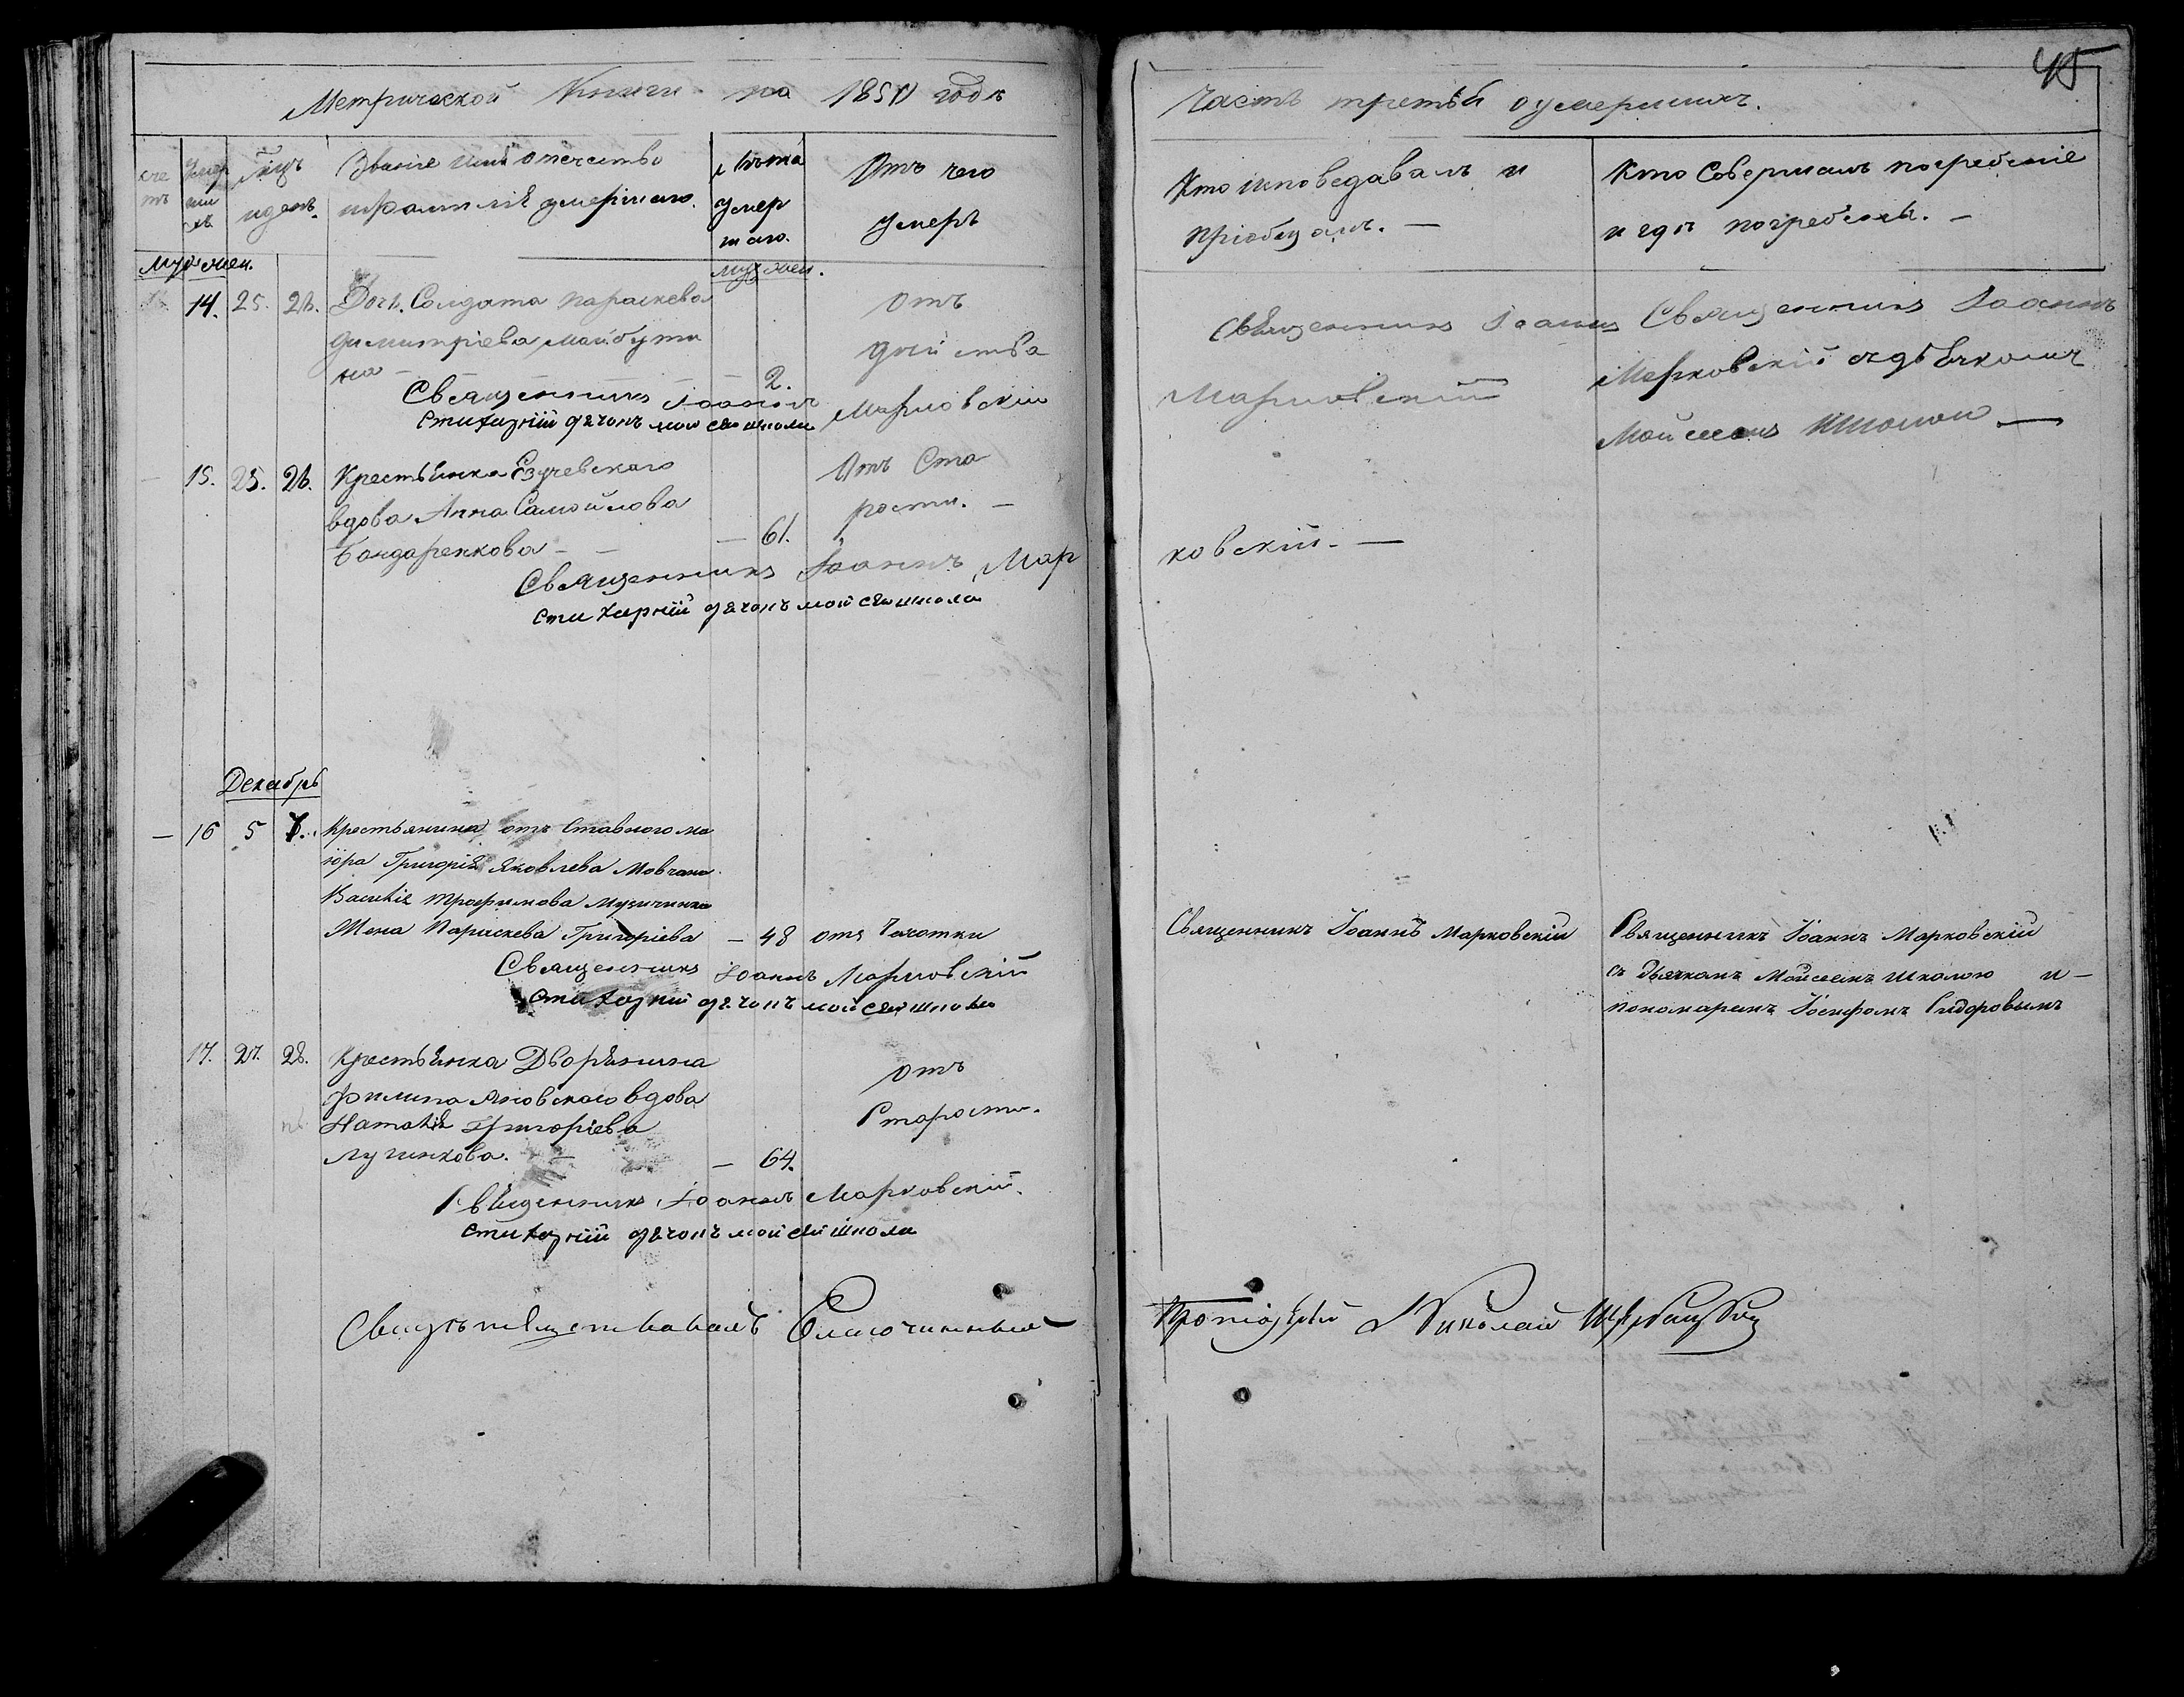 45
Метрической Книги на 185 годъ
Часть третья о умершихъ.
сче тъ
Умер ши хъ
Мцъ и день.
Званіе имя отечество и фамилія умершаго.
Лѣта умер шаго.
Отъ чего умеръ
Кто исповедавалъ и пріобщалъ. —
Кто Совершалъ погребеніе и гдѣ погребены. —
муж жен.
муж жен.
14. 25. 26. Дочь Солдата Параскева
Димитріева Майбути
на — — 2.
Отъ
Священникъ Іоаннъ Марковскій
Стихарній дячокъ Мойсей Школа
Священникъ Іоаннъ
Марковскій
Священникъ Іоаннъ
Марковскій съ дьячкомъ
Мойсеемъ Школою —
— 15. 25. 26. Крестьянка Езучевскаго
вдова Анна Самойлова
Бондаренкова — — — 61.
Отъ Ста
рости. —
Священникъ Іоаннъ Мар
ковскій. —
Стихарній дячокъ Мойсей Школа
Декабрь
— 16 5 7. Крестьянина отъ Ставного ма
іора Григорія Яковлева Мовчана
Василія Трофимова
Жена Параскева Григоріева — 48 отъ Чахотки
Священникъ Іоаннъ Марковскій
Стихарній дячокъ Мойсей Школа
Священникъ Іоаннъ Марковскій
Священникъ Іоаннъ Марковскій
съ дьячкомъ Мойсеемъ Школою и —
пономаремъ Іосифомъ Сидоровымъ
17. 27. 28. Крестьянка Дворянина
Филипа Яновскаго вдова
Наталія Григоріева
Лученкова. — — 64.
Отъ
Старости.
Священникъ Іоаннъ Марковскій.
Стихарній дячокъ Мойсей Школа
Свидѣтельствовалъ Благочинный
Протоіерей Николай